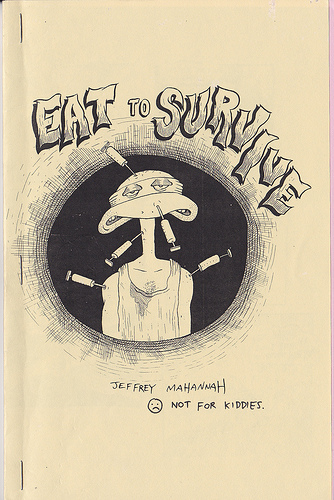 EAT TO SURVIVE
JEFFREY MAHANNAH
NOT FOR KIDDIES.